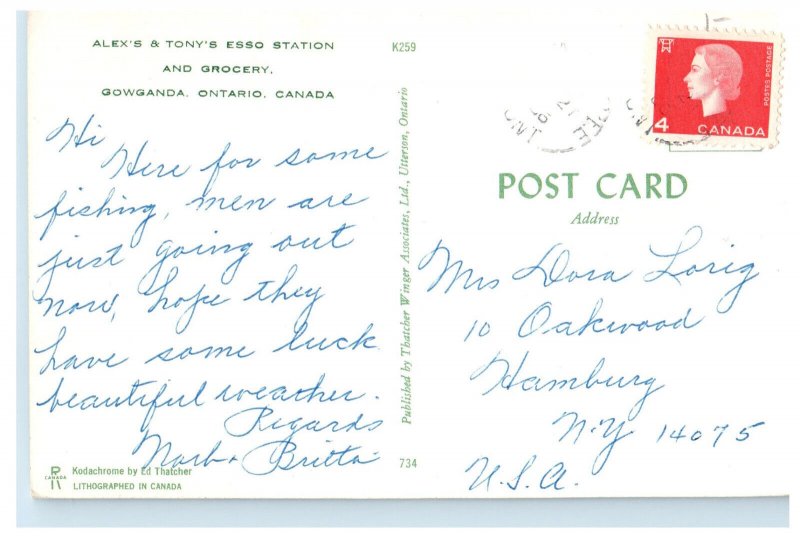 ALEX'S & TONY'S ESSO STATION
AND GROCERY,
GOWGANDA, ONTARIO, CANADA
Hi
Here for some
fishing, men are
just going out
now, hope they
have some luck
beautiful weather.
Regards
Norb + Britta
Kodachrome by Ed Thatcher
LITHOGRAPHED IN CANADA
CANADA
K259
Published by Thatcher Winger Associates, Ltd., Utterson, Ontario
734
4
CANADA
POSTES POSTAGE
POST CARD
Address
Mrs Dora Lorig
10 Oakwood
Hamburg
N.Y 14075
U.S.A.